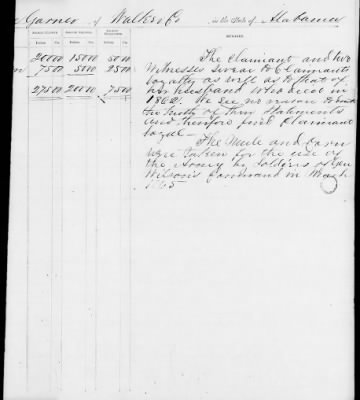 Garner of Walker Co. in the State of Alabama
AMOUNT CLAIMED. AMOUNT ALLOWED. AMOUNT DISALLOWED. REMARKS.
Dollars. Cts. Dollars. Cts. Dollars. Cts.
200 00 150 00 50 00
75 00 50 00 25 00
275 00 200 00 75 00
The Claimant and two
witnesses swear to Claimants
loyalty as well as to that of
her husband who died in
1862. We see no reason to doubt
the truth of their Statements
and therefore find Claimant
loyal—
The Mule and Corn
were taken for the use of
the Army by soldiers of Gen
Wilson's Command in March
1865